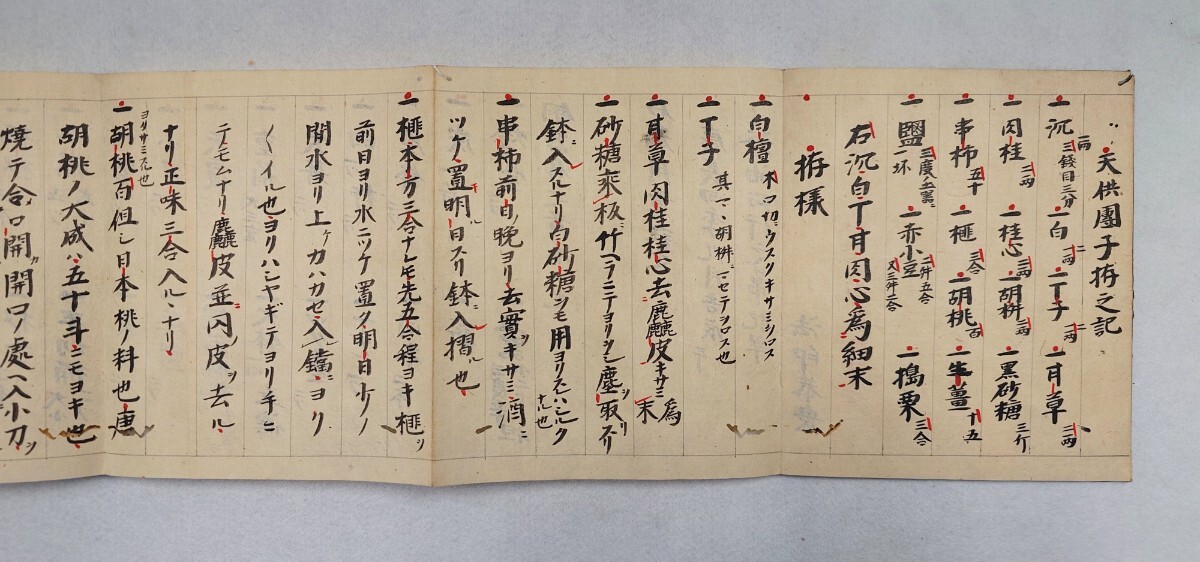 天供團子拵之記
一沉 三錢目三分 一白 二両 一丁子 二両 一甘草 三両
一肉桂 三両 一桂心 三両 一胡桝 三両 一黒砂糖 三斤
一串柿 五十 一榧 三合 一胡桃 百 一生薑 十五
一鹽 一坏 一赤小豆 一搗栗 三合
右沉白丁甘肉心為細末
拵様
一白檀 木口切ウスクキサミシロス
一丁子 其マヽ胡桝ニマセテヲロス也
一甘草肉桂桂心去麁皮キサミ為末
砂糖乘板竹ヘラニテヨリ塵取スリ
鉢ニ入スルナリ白砂糖ヲモ用ヨリ
一串柿前日ノ晩ヨリ去實ヲキサミ酒ニ
ツケ置明ル日スリ鉢ニ入摺ル也
一榧本方三合ナレモ先五合程ヨキ榧ヲ
前日ヨリ水ニツケ置ク明日少ノ
間水ヨリ上ケカハカセ入鐺ニヨク
〱イル也ヨリハシヤギテヨリ手ニ
テモムナリ麁皮並ニ内皮ヲ去ル
ナリ正味三合入ルヽナリ
一胡桃百但シ日本桃ノ料也唐
胡桃ノ大成ハ五十斗ニモヨキ也
焼テ合口開ク開口ノ處ヘ入小刀ヲ